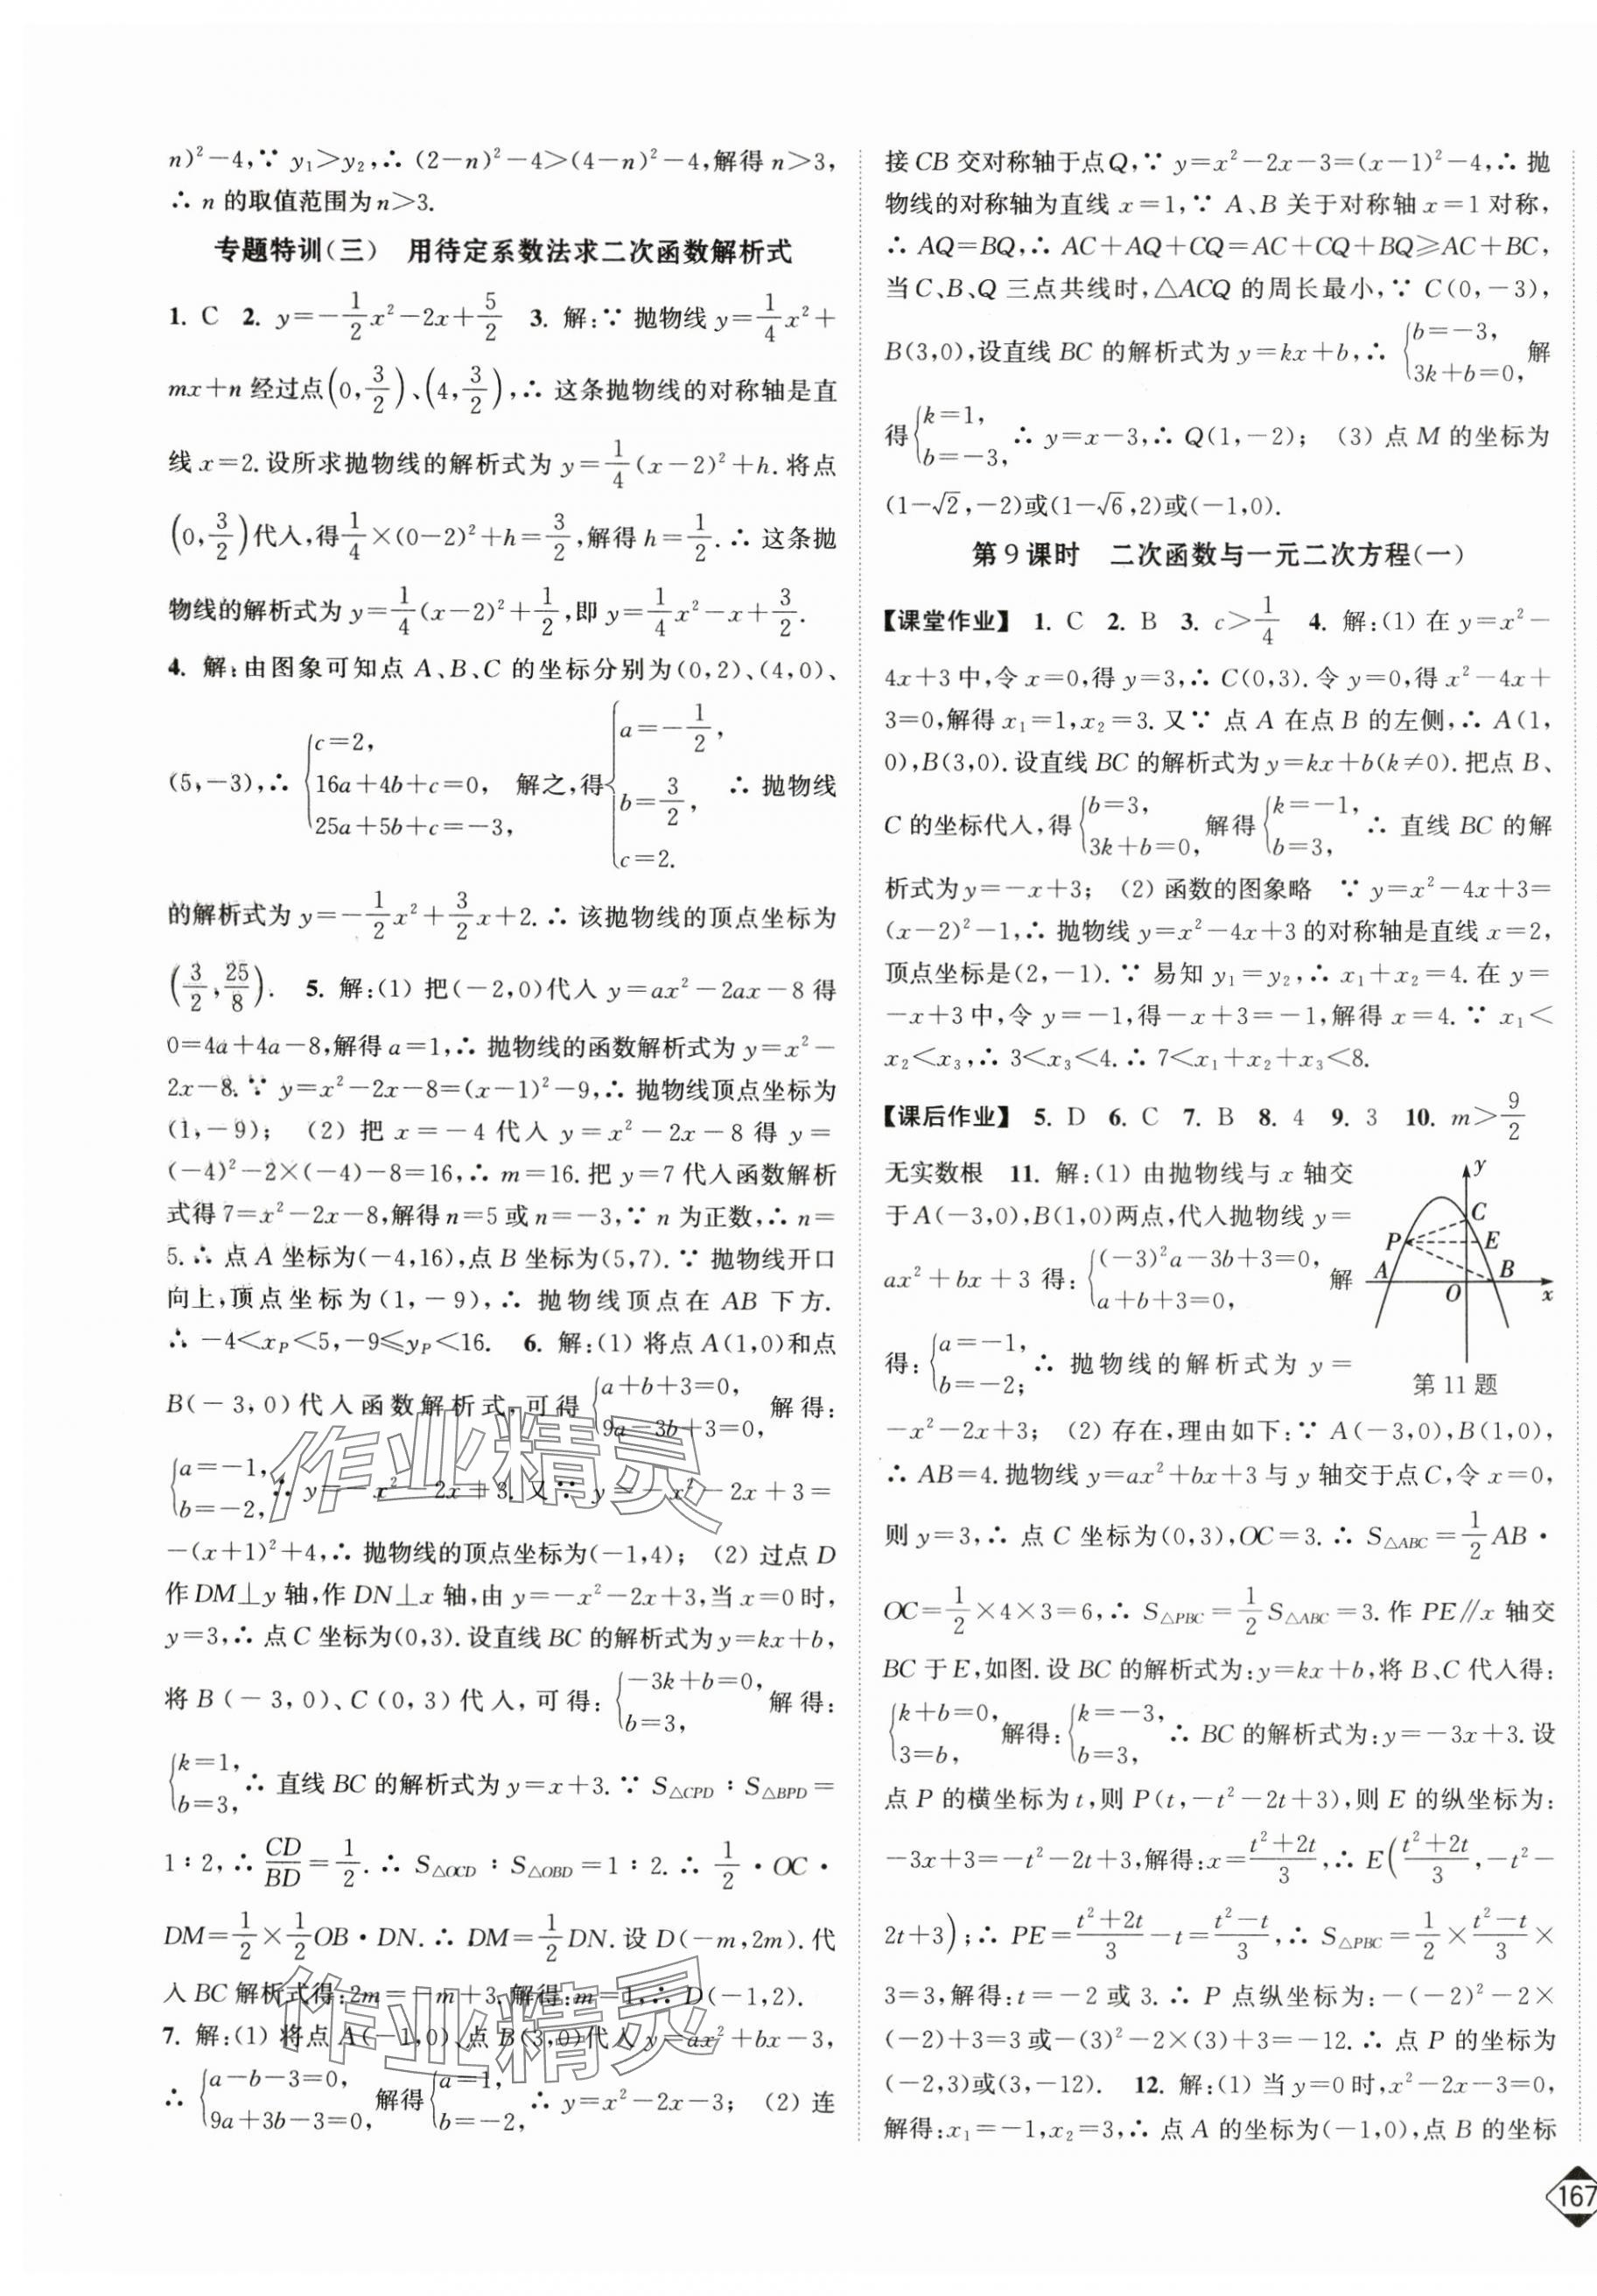 n)²-4,∵ y₁>y₂,∴ (2-n)²-4>(4-n)²-4,解得 n>3,
∴ n 的取值范围为 n>3.
专题特训(三) 用待定系数法求二次函数解析式
1. C 2. y=-1/2x²-2x+5/2 3. 解:∵ 抛物线 y=1/4x²+
mx+n 经过点(0,3/2)、(4,3/2),∴ 这条抛物线的对称轴是直
线 x=2.设所求抛物线的解析式为 y=1/4(x-2)²+h.将点
(0,3/2)代入,得1/4×(0-2)²+h=3/2,解得 h=1/2.∴ 这条抛
物线的解析式为 y=1/4(x-2)²+1/2,即 y=1/4x²-x+3/2.
4. 解:由图象可知点 A、B、C 的坐标分别为(0,2)、(4,0)、
(5,-3),∴ {c=2, 16a+4b+c=0, 25a+5b+c=-3, 解之,得{a=-1/2, b=3/2, c=2. ∴ 抛物线
的解析式为 y=-1/2x²+3/2x+2.∴ 该抛物线的顶点坐标为
(3/2,25/8). 5. 解:(1) 把(-2,0)代入 y=ax²-2ax-8 得
0=4a+4a-8,解得 a=1,∴ 抛物线的函数解析式为 y=x²-
2x-8.∵ y=x²-2x-8=(x-1)²-9,∴ 抛物线顶点坐标为
(1,-9); (2) 把 x=-4 代入 y=x²-2x-8 得 y=
(-4)²-2×(-4)-8=16,∴ m=16.把 y=7 代入函数解析
式得 7=x²-2x-8,解得 n=5 或 n=-3,∵ n 为正数,∴ n=
5.∴ 点 A 坐标为(-4,16),点 B 坐标为(5,7).∵ 抛物线开口
向上,顶点坐标为(1,-9),∴ 抛物线顶点在 AB 下方.
∴ -4<x_P<5,-9≤y_P<16. 6. 解:(1) 将点 A(1,0)和点
B(-3,0)代入函数解析式,可得{a+b+3=0, 9a-3b+3=0, 解得:
{a=-1, b=-2, ∴ y=-x²-2x+3.又∵ y=-x²-2x+3=
-(x+1)²+4,∴ 抛物线的顶点坐标为(-1,4); (2) 过点 D
作 DM⊥y 轴,作 DN⊥x 轴,由 y=-x²-2x+3,当 x=0 时,
y=3,∴ 点 C 坐标为(0,3).设直线 BC 的解析式为 y=kx+b,
将 B(-3,0)、C(0,3)代入,可得:{-3k+b=0, b=3, 解得:
{k=1, b=3, ∴ 直线 BC 的解析式为 y=x+3.∵ S△CPD∶S△BPD=
1∶2,∴ CD/BD=1/2.∴ S△OCD∶S△OBD=1∶2.∴ 1/2·OC·
DM=1/2×1/2OB·DN.∴ DM=1/2DN.设 D(-m,2m).代
入 BC 解析式得:2m=-m+3,解得:m=1,∴ D(-1,2).
7. 解:(1) 将点 A(-1,0)、点 B(3,0)代入 y=ax²+bx-3,
∴ {a-b-3=0, 9a+3b-3=0, 解得{a=1, b=-2, ∴ y=x²-2x-3; (2) 连
接 CB 交对称轴于点 Q,∵ y=x²-2x-3=(x-1)²-4,∴ 抛
物线的对称轴为直线 x=1,∵ A、B 关于对称轴 x=1 对称,
∴ AQ=BQ,∴ AC+AQ+CQ=AC+CQ+BQ≥AC+BC,
当 C、B、Q 三点共线时,△ACQ 的周长最小,∵ C(0,-3),
B(3,0),设直线 BC 的解析式为 y=kx+b,∴ {b=-3, 3k+b=0, 解
得{k=1, b=-3, ∴ y=x-3,∴ Q(1,-2); (3) 点 M 的坐标为
(1-√2,-2)或(1-√6,2)或(-1,0).
第 9 课时 二次函数与一元二次方程(一)
【课堂作业】 1. C 2. B 3. c>1/4 4. 解:(1) 在 y=x²-
4x+3 中,令 x=0,得 y=3,∴ C(0,3).令 y=0,得 x²-4x+
3=0,解得 x₁=1,x₂=3.又∵ 点 A 在点 B 的左侧,∴ A(1,
0),B(3,0).设直线 BC 的解析式为 y=kx+b(k≠0).把点 B、
C 的坐标代入,得{b=3, 3k+b=0, 解得{k=-1, b=3, ∴ 直线 BC 的解
析式为 y=-x+3; (2) 函数的图象略 ∵ y=x²-4x+3=
(x-2)²-1,∴ 抛物线 y=x²-4x+3 的对称轴是直线 x=2,
顶点坐标是(2,-1).∵ 易知 y₁=y₂,∴ x₁+x₂=4.在 y=
-x+3 中,令 y=-1,得-x+3=-1,解得 x=4.∵ x₁<
x₂<x₃,∴ 3<x₃<4.∴ 7<x₁+x₂+x₃<8.
【课后作业】 5. D 6. C 7. B 8. 4 9. 3 10. m>9/2
无实数根 11. 解:(1) 由抛物线与 x 轴交
于 A(-3,0),B(1,0)两点,代入抛物线 y=
ax²+bx+3 得:{(-3)²a-3b+3=0, a+b+3=0, 解
得:{a=-1, b=-2; ∴ 抛物线的解析式为 y=
y
C
P
E
A
B
O
x
第 11 题
-x²-2x+3; (2) 存在,理由如下:∵ A(-3,0),B(1,0),
∴ AB=4.抛物线 y=ax²+bx+3 与 y 轴交于点 C,令 x=0,
则 y=3,∴ 点 C 坐标为(0,3),OC=3.∴ S△ABC=1/2AB·
OC=1/2×4×3=6,∴ S△PBC=1/2S△ABC=3.作 PE∥x 轴交
BC 于 E,如图.设 BC 的解析式为:y=kx+b,将 B、C 代入得:
{k+b=0, 3=b, 解得:{k=-3, b=3, ∴ BC 的解析式为:y=-3x+3.设
点 P 的横坐标为 t,则 P(t,-t²-2t+3),则 E 的纵坐标为:
-3x+3=-t²-2t+3,解得:x=(t²+2t)/3,∴ E((t²+2t)/3,-t²-
2t+3);∴ PE=(t²+2t)/3-t=(t²-t)/3,∴ S△PBC=1/2×(t²-t)/3×
3=3,解得:t=-2 或 3.∴ P 点纵坐标为:-(-2)²-2×
(-2)+3=3 或-(3)²-2×(3)+3=-12.∴ 点 P 的坐标为
(-2,3)或(3,-12). 12. 解:(1) 当 y=0 时,x²-2x-3=0,
解得:x₁=-1,x₂=3,∴ 点 A 的坐标为(-1,0),点 B 的坐标
167
作业精灵
作业精灵